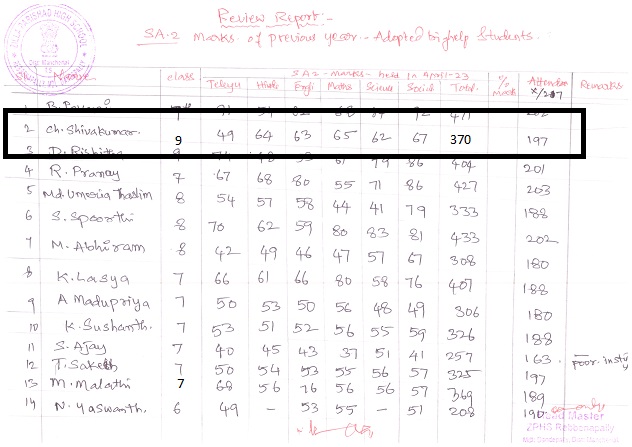 Review Report:-
SA-2 Marks of previous year - Adopted bighelp Students.
ZILLA PARISHAD HIGH SCHOOL
Dist. Mancherial
Sl. Name class SA2 - Marks - held in April-23 % Mark Attendan x/207 Remarks
Telugu Hindi Engli Maths Science Social Total
1
2 Ch. Shivakumar 9 49 64 63 65 62 67 370 197
3 D. Rishitha
4 R. Pranay 7 67 68 80 55 71 86 427 201
5 Md. Umesia Thaslim 8 54 57 58 44 41 79 333 203
6 S. Spoorthi 8 70 62 59 80 83 81 433 188
7 M. Abhiram 8 42 49 46 47 57 67 308 202
8 K. Lasya 7 66 61 66 80 58 76 407 180
9 A Madupriya 7 50 53 50 56 48 49 306 188
10 K. Sushanth. 7 53 51 52 56 55 59 326 180
11 S. Ajay 7 40 45 43 37 51 41 257 188
12 T. Saketh 7 50 54 53 55 56 57 325 163 poor insty
13 M. Malathi 7 68 56 76 56 56 57 369 197
14 N. Yaswanth. 6 49 - 53 55 - 51 208 189
190
Head Master
ZPHS Rebbanapally